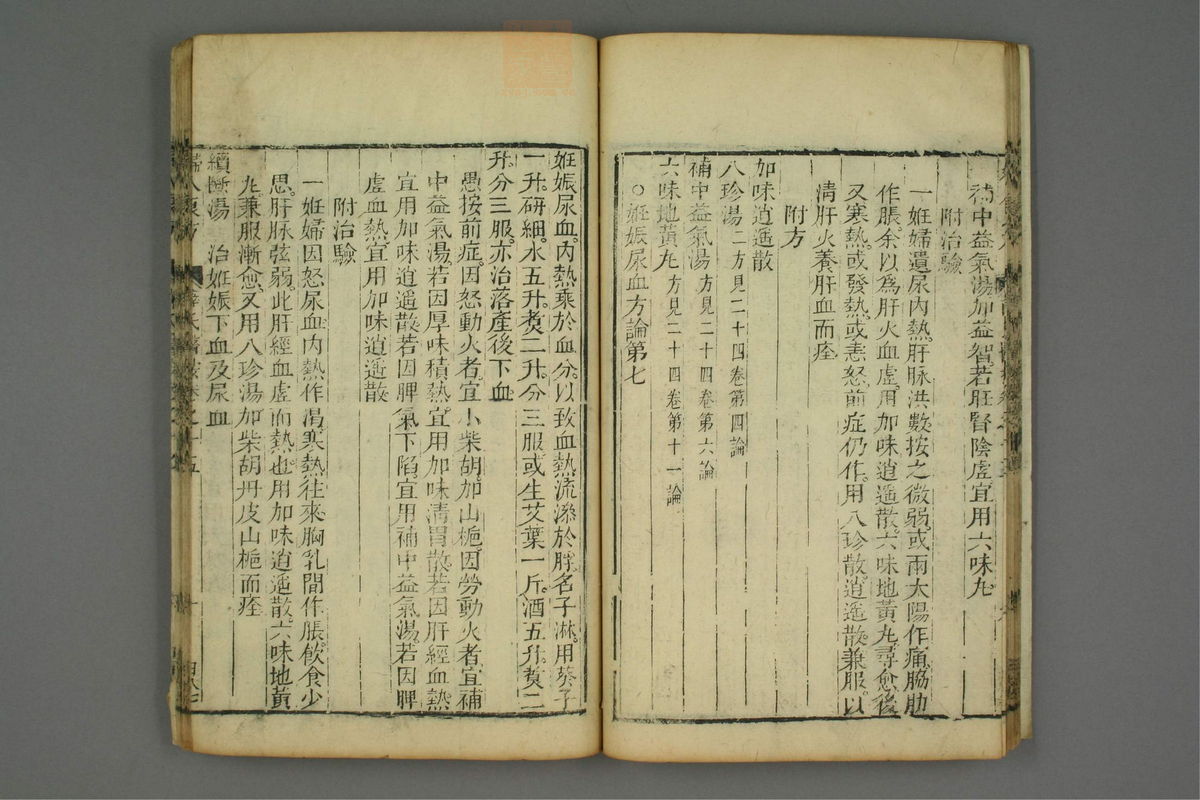 補中益氣湯加益智若肝腎陰虛宜用六味丸
附治驗
一姙婦遺尿內熱肝脉洪數按之微弱或兩太陽作痛脇肋
作脹余以爲肝火血虛用加味逍遥散六味地黃丸尋愈後
又寒熱或發熱或恚怒前症仍作用八珍散逍遥散兼服以
清肝火養肝血而痊
附方
加味逍遥散
八珍湯二方見二十四卷第四論
補中益氣湯方見二十四卷第六論
六味地黃丸方見二十四卷第十一論
○姙娠尿血方論第七
姙娠尿血內熱乘於血分以致血熱流滲於脬名子淋用葵子
一升研細水五升煑二升分三服或生艾葉一斤酒五升煑二
升分三服亦治落產後下血
愚按前症因怒動火者宜小柴胡加山梔因勞動火者宜補
中益氣湯若因厚味積熱宜用加味清胃散若因肝經血熱
宜用加味逍遥散若因脾氣下陷宜用補中益氣湯若因脾
虛血熱宜用加味逍遥散
附治驗
一姙婦因怒尿血內熱作渴寒熱往來胸乳間作脹飲食少
思肝脉弦弱此肝經血虛而熱也用加味逍遥散六味地黃
丸兼服漸愈又用八珍湯加柴胡丹皮山梔而痊
續斷湯 治姙娠下血及尿血
婦人良方